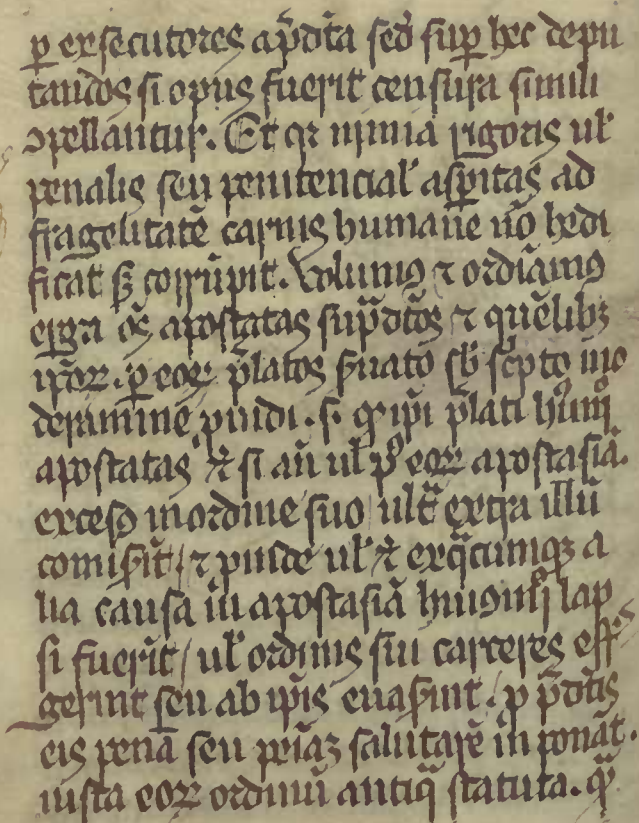 ꝑ exsecutores ap̄dc̄a sed sup̱ hec depu
tandos si opus fuerit censura simili
ꝯpellantur. Et qꝛ nimia rigoris ul̛
penalis seu penitencial̛ asp̱itas ad
fragelitatē carnis humane nō hedi
ficat sꝫ corrūpit. Volumus ⁊ ordiamꝰ
erga oēs apostatas sup̄dc̄os ⁊ quēlibꝫ
ip̄oꝝ. ꝑ eoꝝ p̄latos ẜuato sb̄ sc̄pto mo
deramine puidi. s. qꝙ ip̄i p̄lati hꝰmōi
apostatas ⁊ si an̄ ul̛ pꝰ eoꝝ apostasiā.
excessꝰ in ordine suo ul̛ ēt extra illū
comiserīt / ⁊ puide ul̛ ⁊ ex q̄cumqꝫ a
lia causa in apostasiā huiusmōi lap
si fuerīt / ul̛ ordinis sui carceres eff
gerint seu ab ip̄is euaserint. ꝓ p̄dc̄is
eis penā seu pn̄iaꝫ salutarē inponāt.
iusta eoꝝ ordinū antiq̄ statuta. qꝙ